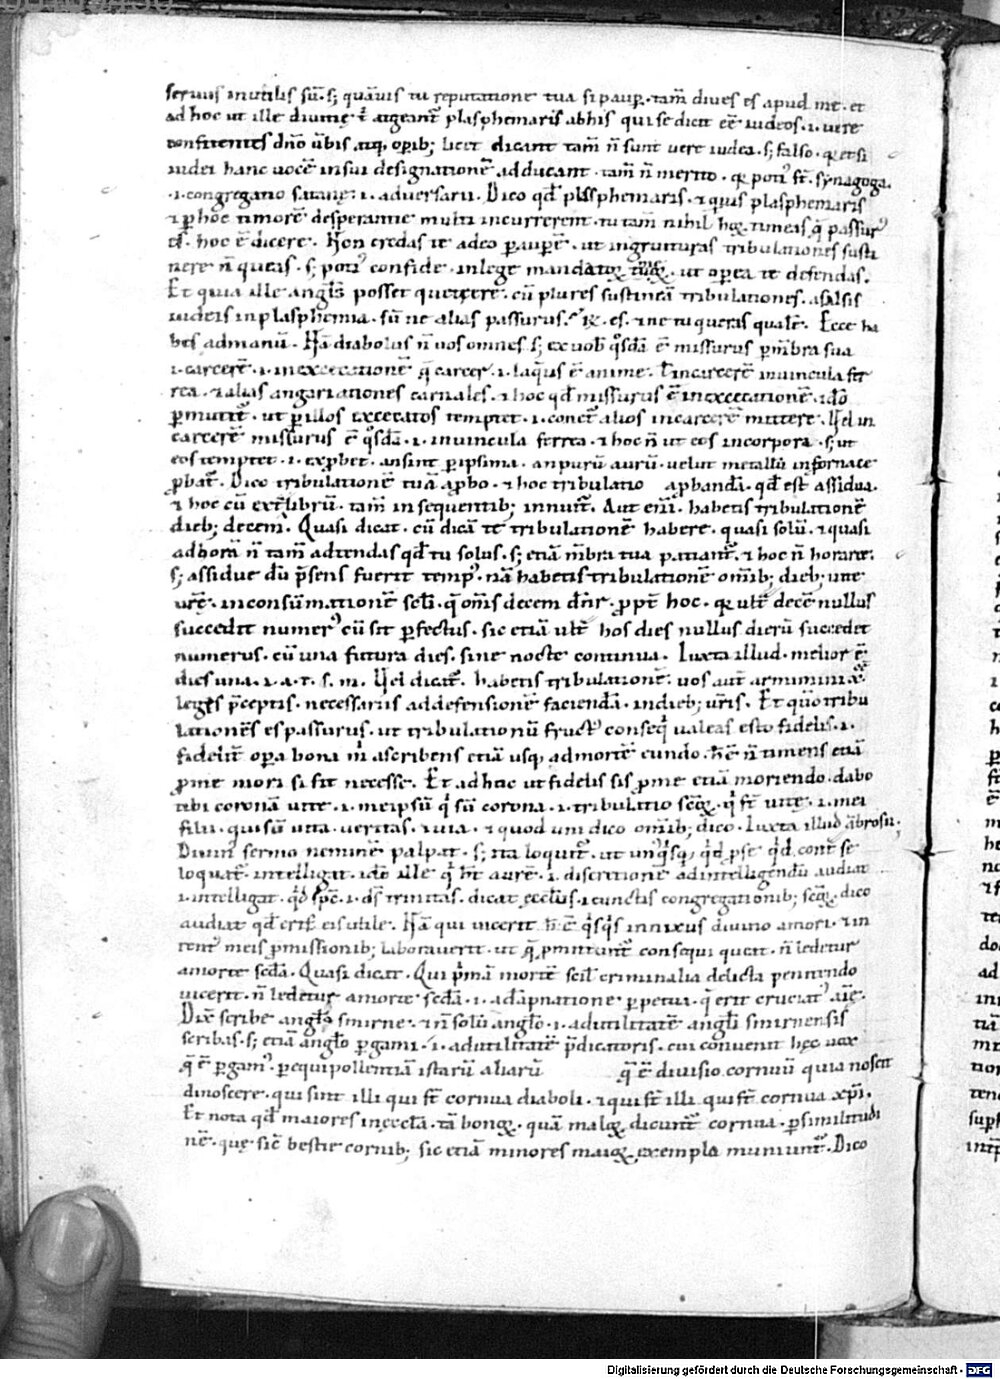 seruus inutilis sū. s; quāuis tu reputatione tua si paup. tam̄ diues es apud me. et
ad hoc ut ille diuitię t̄ augeant̄ plasphemaris ab his qui se dicūt eē iudeos .i. uere
confitentes dn̄o uerbis atq, oꝑib; licet dicant tam̄ n̄ sunt uere iudei. s; falso. et si
iudei hanc uocē in sui designationē adducant. tam̄ n̄ merito. poti᾽ st̄. synagoga.
.i. congregatio satanę .i. aduersarii. Dico qd̄ plasphemaris. ⁊ quis plasphemaris
⁊ ꝑ hoc timorē desperantie multi incurrerent. tu tam̄ nihil hoꝝ timeas q̄ passur᾽
es. hoc ē dicere. Non credas te adeo pauperē. ut ingruituras tribulationes susti
nere n̄ queas. s; poti᾽ confide in lege mandatoꝝ ut oꝑa te defendas.
Et quia ille angl̄s posset querere. cū plures sustineā tribulationes. a falsis
iudeis in plasphemia. sū ne alias passurus. es. ⁊ ne tu queras qualē. Ecce ha
bes ad manū. Nā diabolus n̄ uos omnes s; ex uob̄ q᾽sdā ē missurus ꝑ mēbra sua
.i. carcerē .i. in excecationē q̄ carcer .i. laq̄us ē anime. ł in carcerē in uincula fer
rea. ⁊ alias angariationes carnales. ⁊ hoc qd̄ missurus ē in excecationē. idō
ꝑmittit̄. ut ꝑ illos excecatos temptet .i. conet̄ alios in carcerē mittere. Vel in
carcerē missurus ē q᾽sdā .i. in uincula ferrea. ⁊ hoc n̄ ut eos in corpora. s; ut
eos temptet .i. exꝓbet. an sint ꝑ ipsima. an purū aurū. uelut metallū in fornace
ꝓbat̄. Dico tribulationē tuā aꝓbo. ⁊ hoc tribulatio aꝓbandā. qd̄ est assidua.
⁊ hoc cū ext̄ librū. tam̄ in sequentib; innuit̄. Aut enī. habetis tribulationē
dieb; decem. Quasi dicat. cū dicā te tribulationē habere. quasi solū. ⁊ quasi
ad horā n̄ tam̄ adtendas qd̄ tu solus. s; etiā mēbra tua patiant̄. ⁊ hoc n̄ horarie.
s; assidue dū p̄sens fuerit temp᾽. nā habetis tribulationē omīb; dieb; uite
ur̄ę. in consūmationē scl̄i. q̄ om̄s decem dn̄r. ꝓpt̄ hoc. ult̄ decē nullus
succedit numer᾽ cū sit ꝑfectus. sic etiā ult̄ hos dies nullus dierū succedet
numerus. cū una futura dies. sine nocte continua. Iuxta illud. melior ē
dies una .i. a. t. s. m. Vel dicat̄. habetis tribulationē. uos aut̄ armimini x̄
leges p̄ceptis. necessariis ad defensionē faciendā. in dieb; ur̄is. Et quō tribu
lationēs es passurus. ut tribulationū fruct᾽ conseq̄ ualeas esto fidelis .i.
fidelit̄ oꝑa bona m̄ ascribens etiā usq, ad mortē eundo. hē n̄ timens etiā
ꝓ me mori si sit necesse. Et ad hoc ut fidelis sis ꝓ me etiā moriendo. dabo
tibi coronā uite .i. me ipsū q̄ sū corona .i. tribulatio scōꝝ. q̄ st̄ uitę .i. mei
filii. qui sū uita. ueritas. ⁊ uia. ⁊ quod uni dico omīb; dico. Iuxta illud ābrosii;
Diuin᾽ sermo neminē palpat. s; ita loquit̄. ut un᾽q᾽sq, qd̄ ꝓ se qd̄ cont̄ se
loquat̄. intelligat. idō ille q̄ ht̄ aurē .i. discretionē ad intelligendū audiat
.i. intelligat. qd̄ sp̄c .i. ds̄ trinitas. dicat ęccl̄iis .i. cunctis congregationib; scōꝝ. dico
audiat qd̄ erit eis utile. Nā qui uicerit. h̄ ē q᾽sq᾽s innixus diuino amori. ⁊ in
tent᾽ meis ꝓmissionib; laborauerit. ut q̄ ꝓmittunt̄ consequi queat. n̄ ledetur
a morte scdā. Quasi dicat. Qui p̄mā mortē scil̄ criminalia delicta penitendo
uicerit. n̄ ledetur a morte scdā .i. a dāpnatione ꝑpetua. q̄ erit cruciat᾽ aīę.
Dix̄ scribe angl̄o smirne. ⁊ n̄ solū angl̄o .i. ad utilitatē angl̄i smirnensis
scribas. s; etiā angl̄o ꝑgami .i. ad utilitatē p̄dicatoris. cui conuenit hęc uox
q̄ ē ꝑgam᾽. ꝑ equipollentiā istarū aliarū q̄ ē diuisio cornuū quia noscit
dinoscere. qui sint illi qui st̄ cornua diaboli. ⁊ qui st̄ illi. qui st̄ cornua xp̄i.
Et nota qd̄ maiores in eccl̄a. tā bonoꝝ. quā maloꝝ dicunt̄ cornua. ꝑ similitudi
nē. quę sic̄ bestie cornib; sic etiā minores maioꝝ exempla muniunt̄. Dico